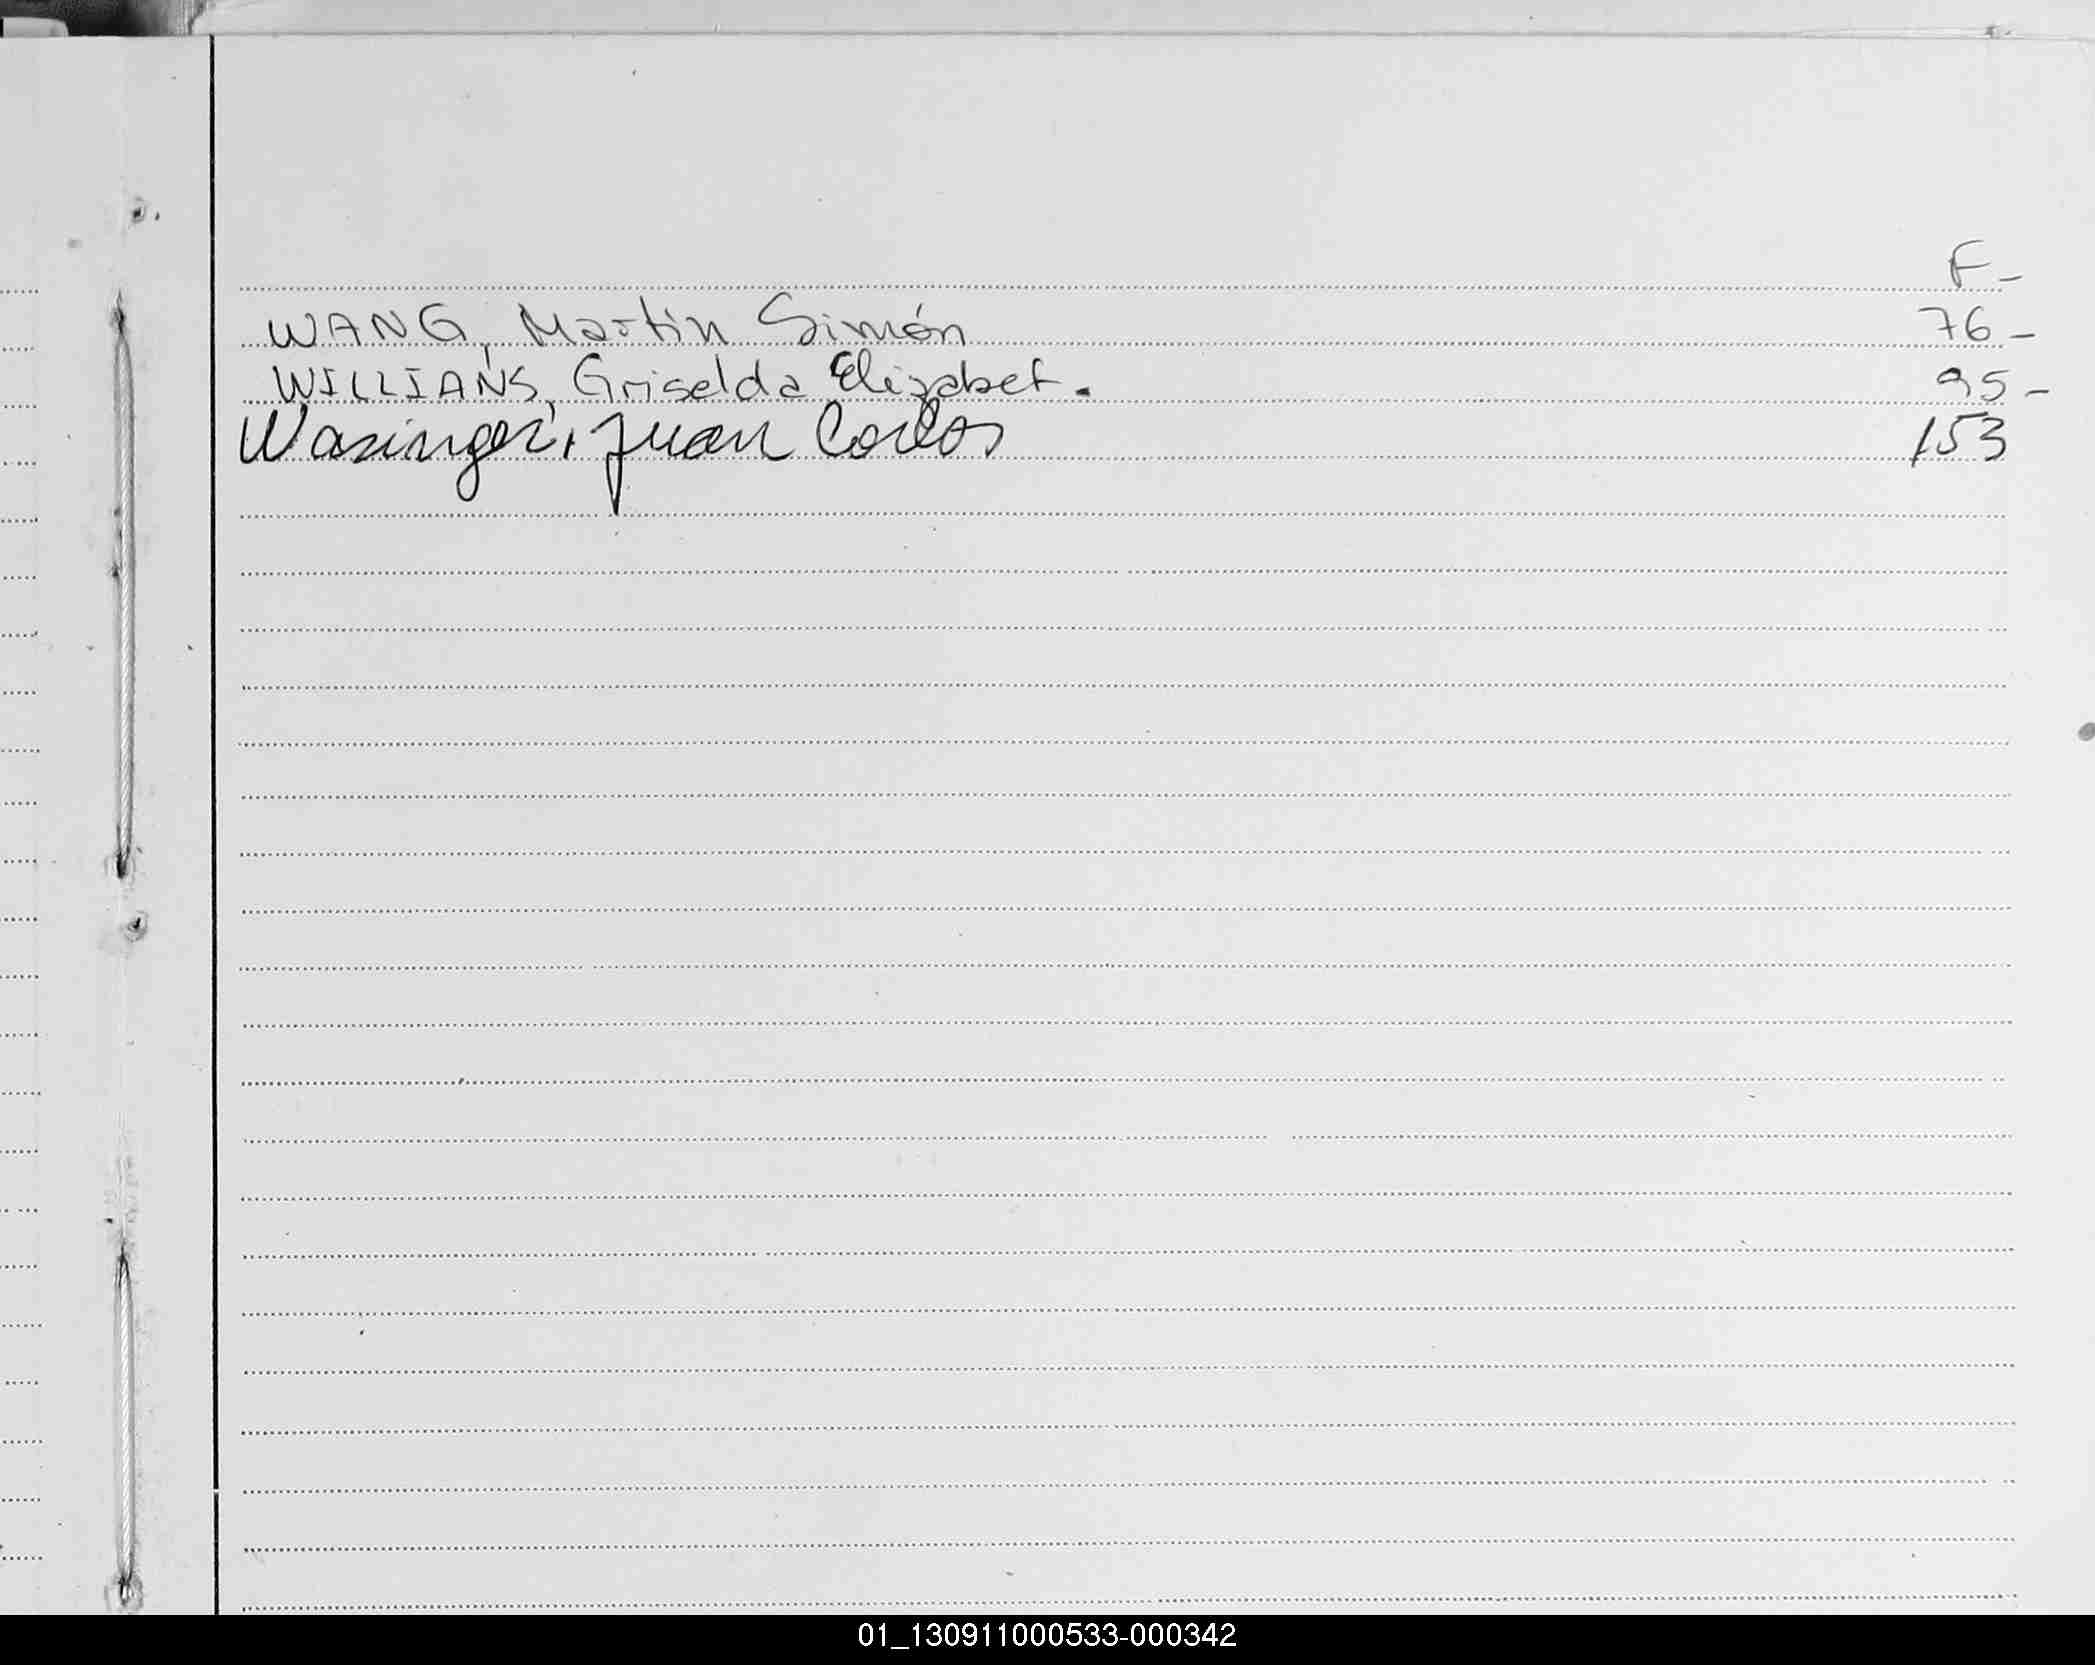 F-
WANG, Martín Simón 76-
WILLIANS, Griselda Elizabet. 95-
Wasinger, Juan Carlos 153
01_130911000533-000342